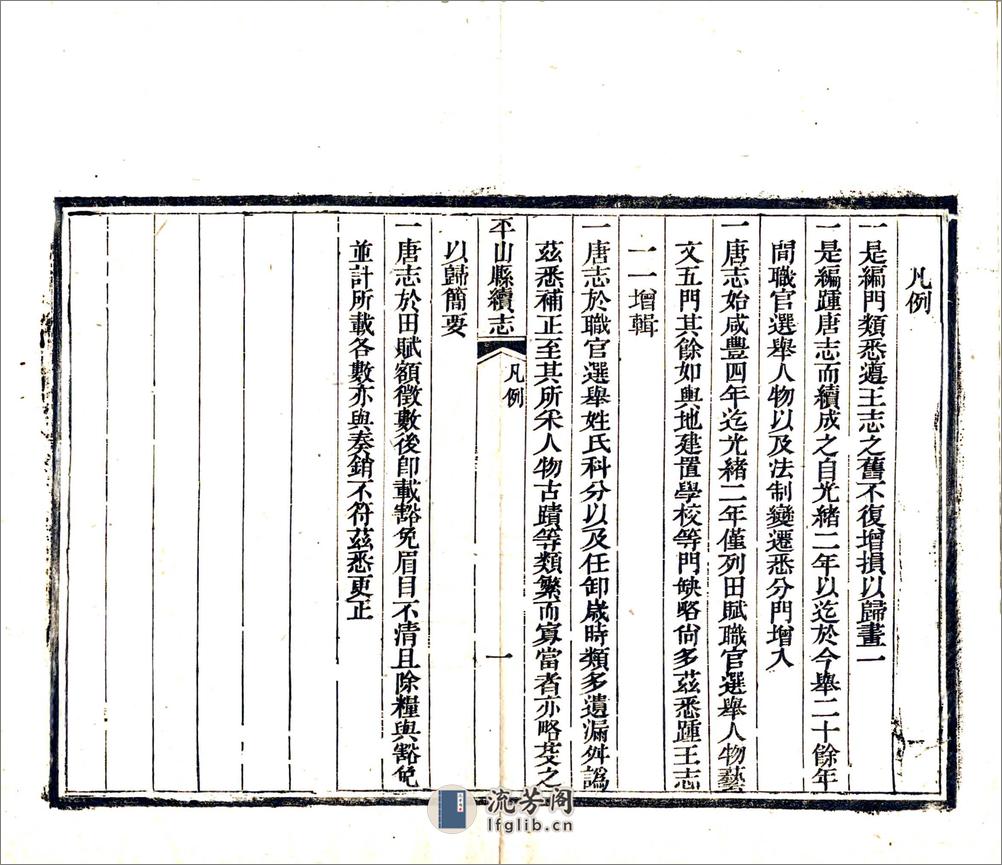 凡例
一是編門類悉遵王志之舊不復增損以歸畫一
一是編踵唐志而續成之自光緒二年以迄於今舉二十餘年
間職官選舉人物以及法制變遷悉分門增入
一唐志始咸豐四年迄光緒二年僅列田賦職官選舉人物藝
文五門其餘如輿地建置學校等門缺略尙多茲悉踵王志
一一增輯
一唐志於職官選舉姓氏科分以及任卸歲時類多遺漏舛譌
茲悉補正至其所采人物古蹟等類繁而寡當者亦略芟之
平山縣續志
凡例
一
以歸簡要
一唐志於田賦額徵數後卽載豁免眉目不清且除糧與豁免
並計所載各數亦與奏銷不符茲悉更正
流芳阁
lfglib.cn